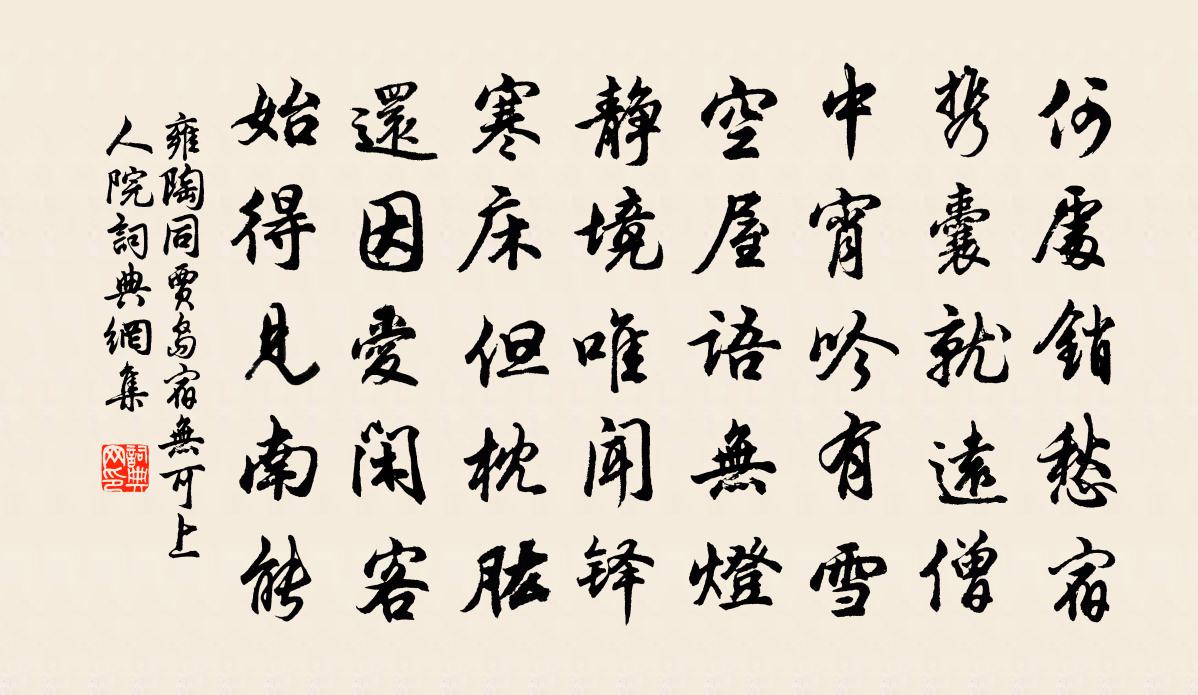 何處銷愁宿
携囊就遠僧
中宵吟有雪
空屋語無燈
靜境唯闻铎
寒床但枕肱
還因愛闲客
始得見南能
雍陶同賈島宿無可上
人院詞典網集
詞典
网印